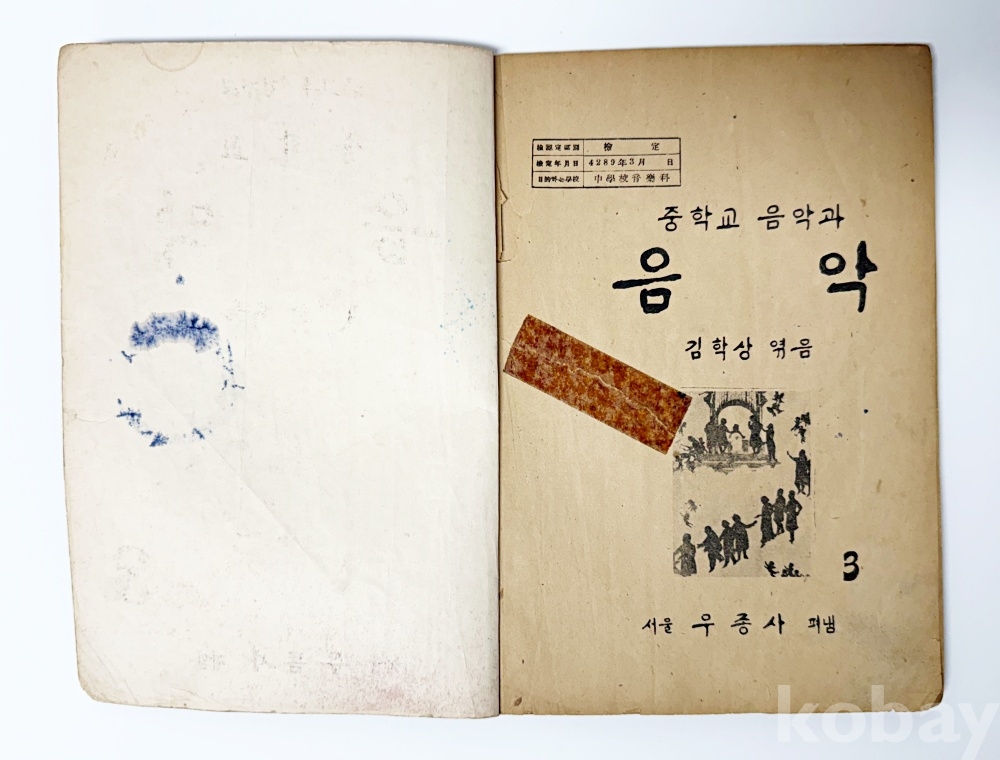 檢認定區別 檢定
檢定年月日 4289年3月 日
目的하는學校 中學校音樂科
중학교 음악과
음악
김학상 엮음
3
서울 우종사 펴냄
kobay